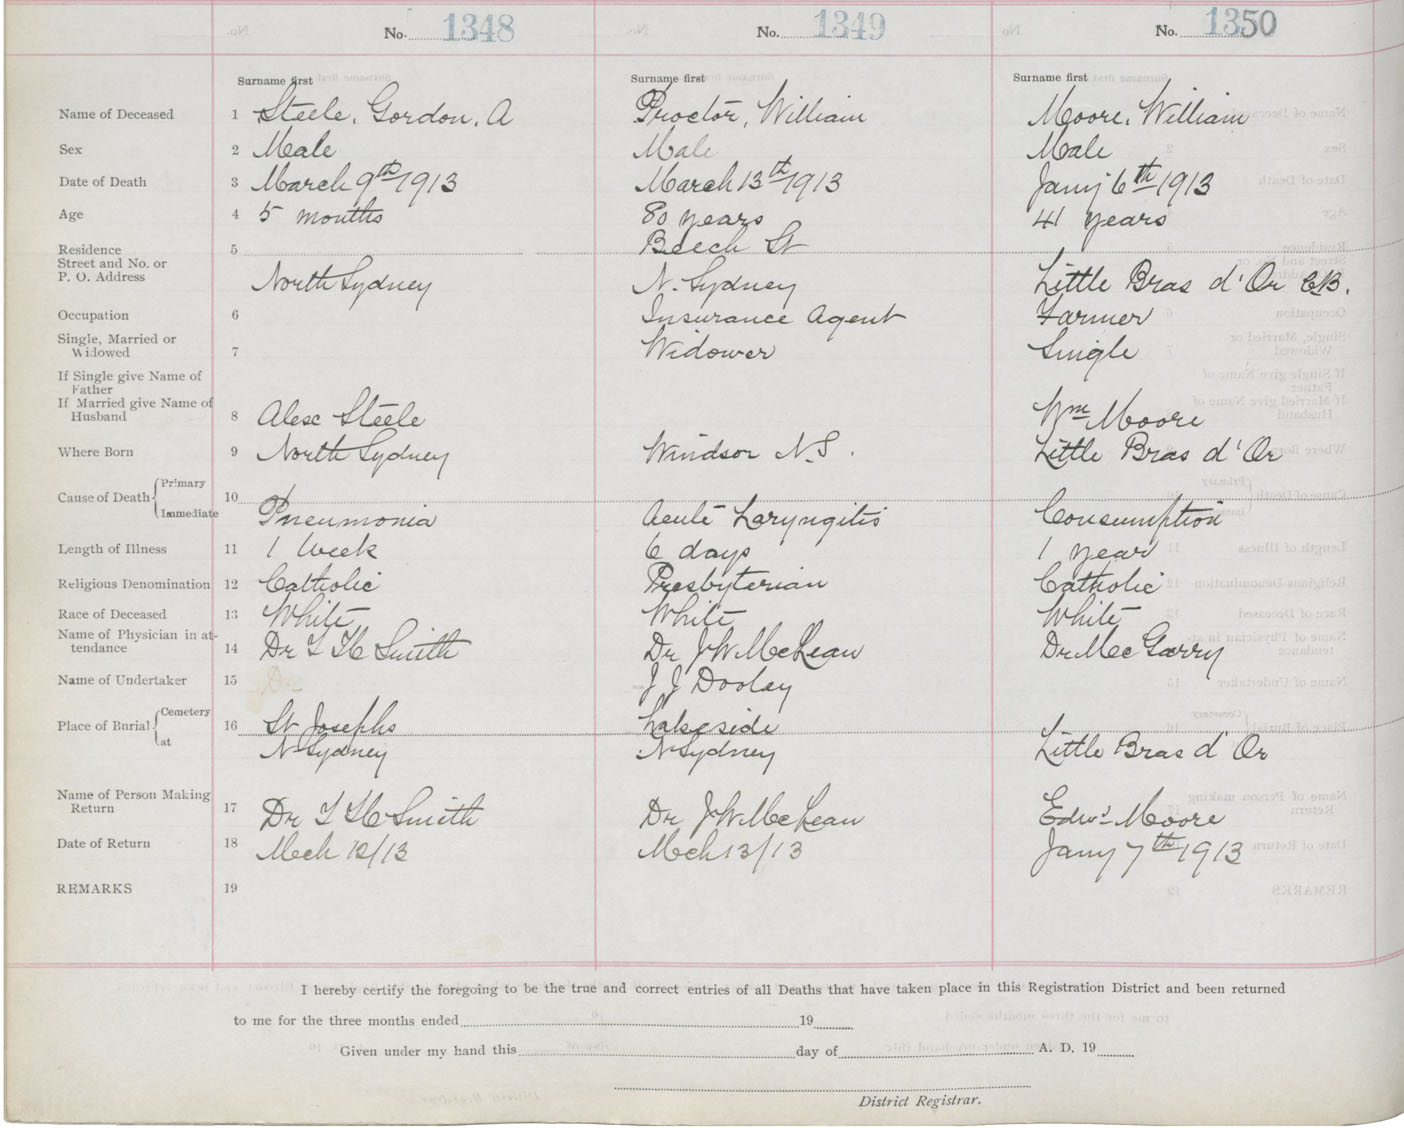 No. 1348 No. 1349 No. 1350
Surname first Surname first Surname first
Name of Deceased 1 Steele, Gordon, A Proctor, William Moore, William
Sex 2 Male Male Male
Date of Death 3 March 9th 1913 March 13th 1913 Jany 6th 1913
Age 4 5 months 80 years 41 years
Residence 5 Beech St
Street and No. or
P. O. Address North Sydney N. Sydney Little Bras d'Or C.B.
Occupation 6 Insurance Agent Farmer
Single, Married or
Widowed 7 Widower Single
If Single give Name of
Father
If Married give Name of
Husband 8 Alex Steele Wm Moore
Where Born 9 North Sydney Windsor N.S. Little Bras d'Or
Cause of Death { Primary
10
Immediate Pneumonia Acute Laryngitis Consumption
Length of Illness 11 1 Week 6 days 1 year
Religious Denomination 12 Catholic Presbyterian Catholic
Race of Deceased 13 White White White
Name of Physician in at-
tendance 14 Dr T H Smith Dr J W McLean Dr McGarry
Name of Undertaker 15 J J Dooley
Place of Burial { Cemetery 16 St Josephs Lakeside
at N Sydney N Sydney Little Bras d'Or
Name of Person Making
Return 17 Dr T H Smith Dr J W McLean Edwd Moore
Date of Return 18 Mch 12/13 Mch 13/13 Jany 7th 1913
REMARKS 19
I hereby certify the foregoing to be the true and correct entries of all Deaths that have taken place in this Registration District and been returned
to me for the three months ended 19
Given under my hand this day of A. D. 19
District Registrar.